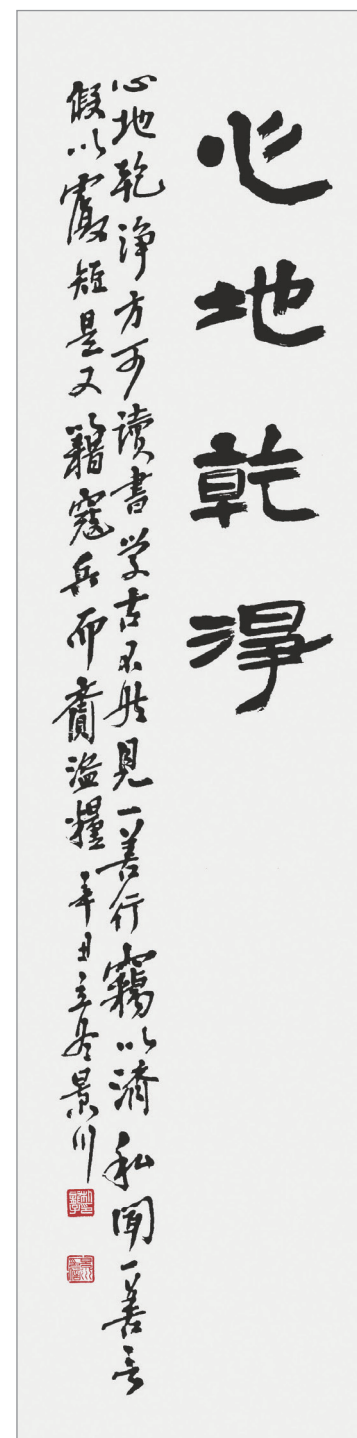 心地乾淨
心地乾淨方可讀書学古不然見一善行竊以濟私聞一善言
假以覆短是又藉寇兵而賫盗糧辛丑立冬景川